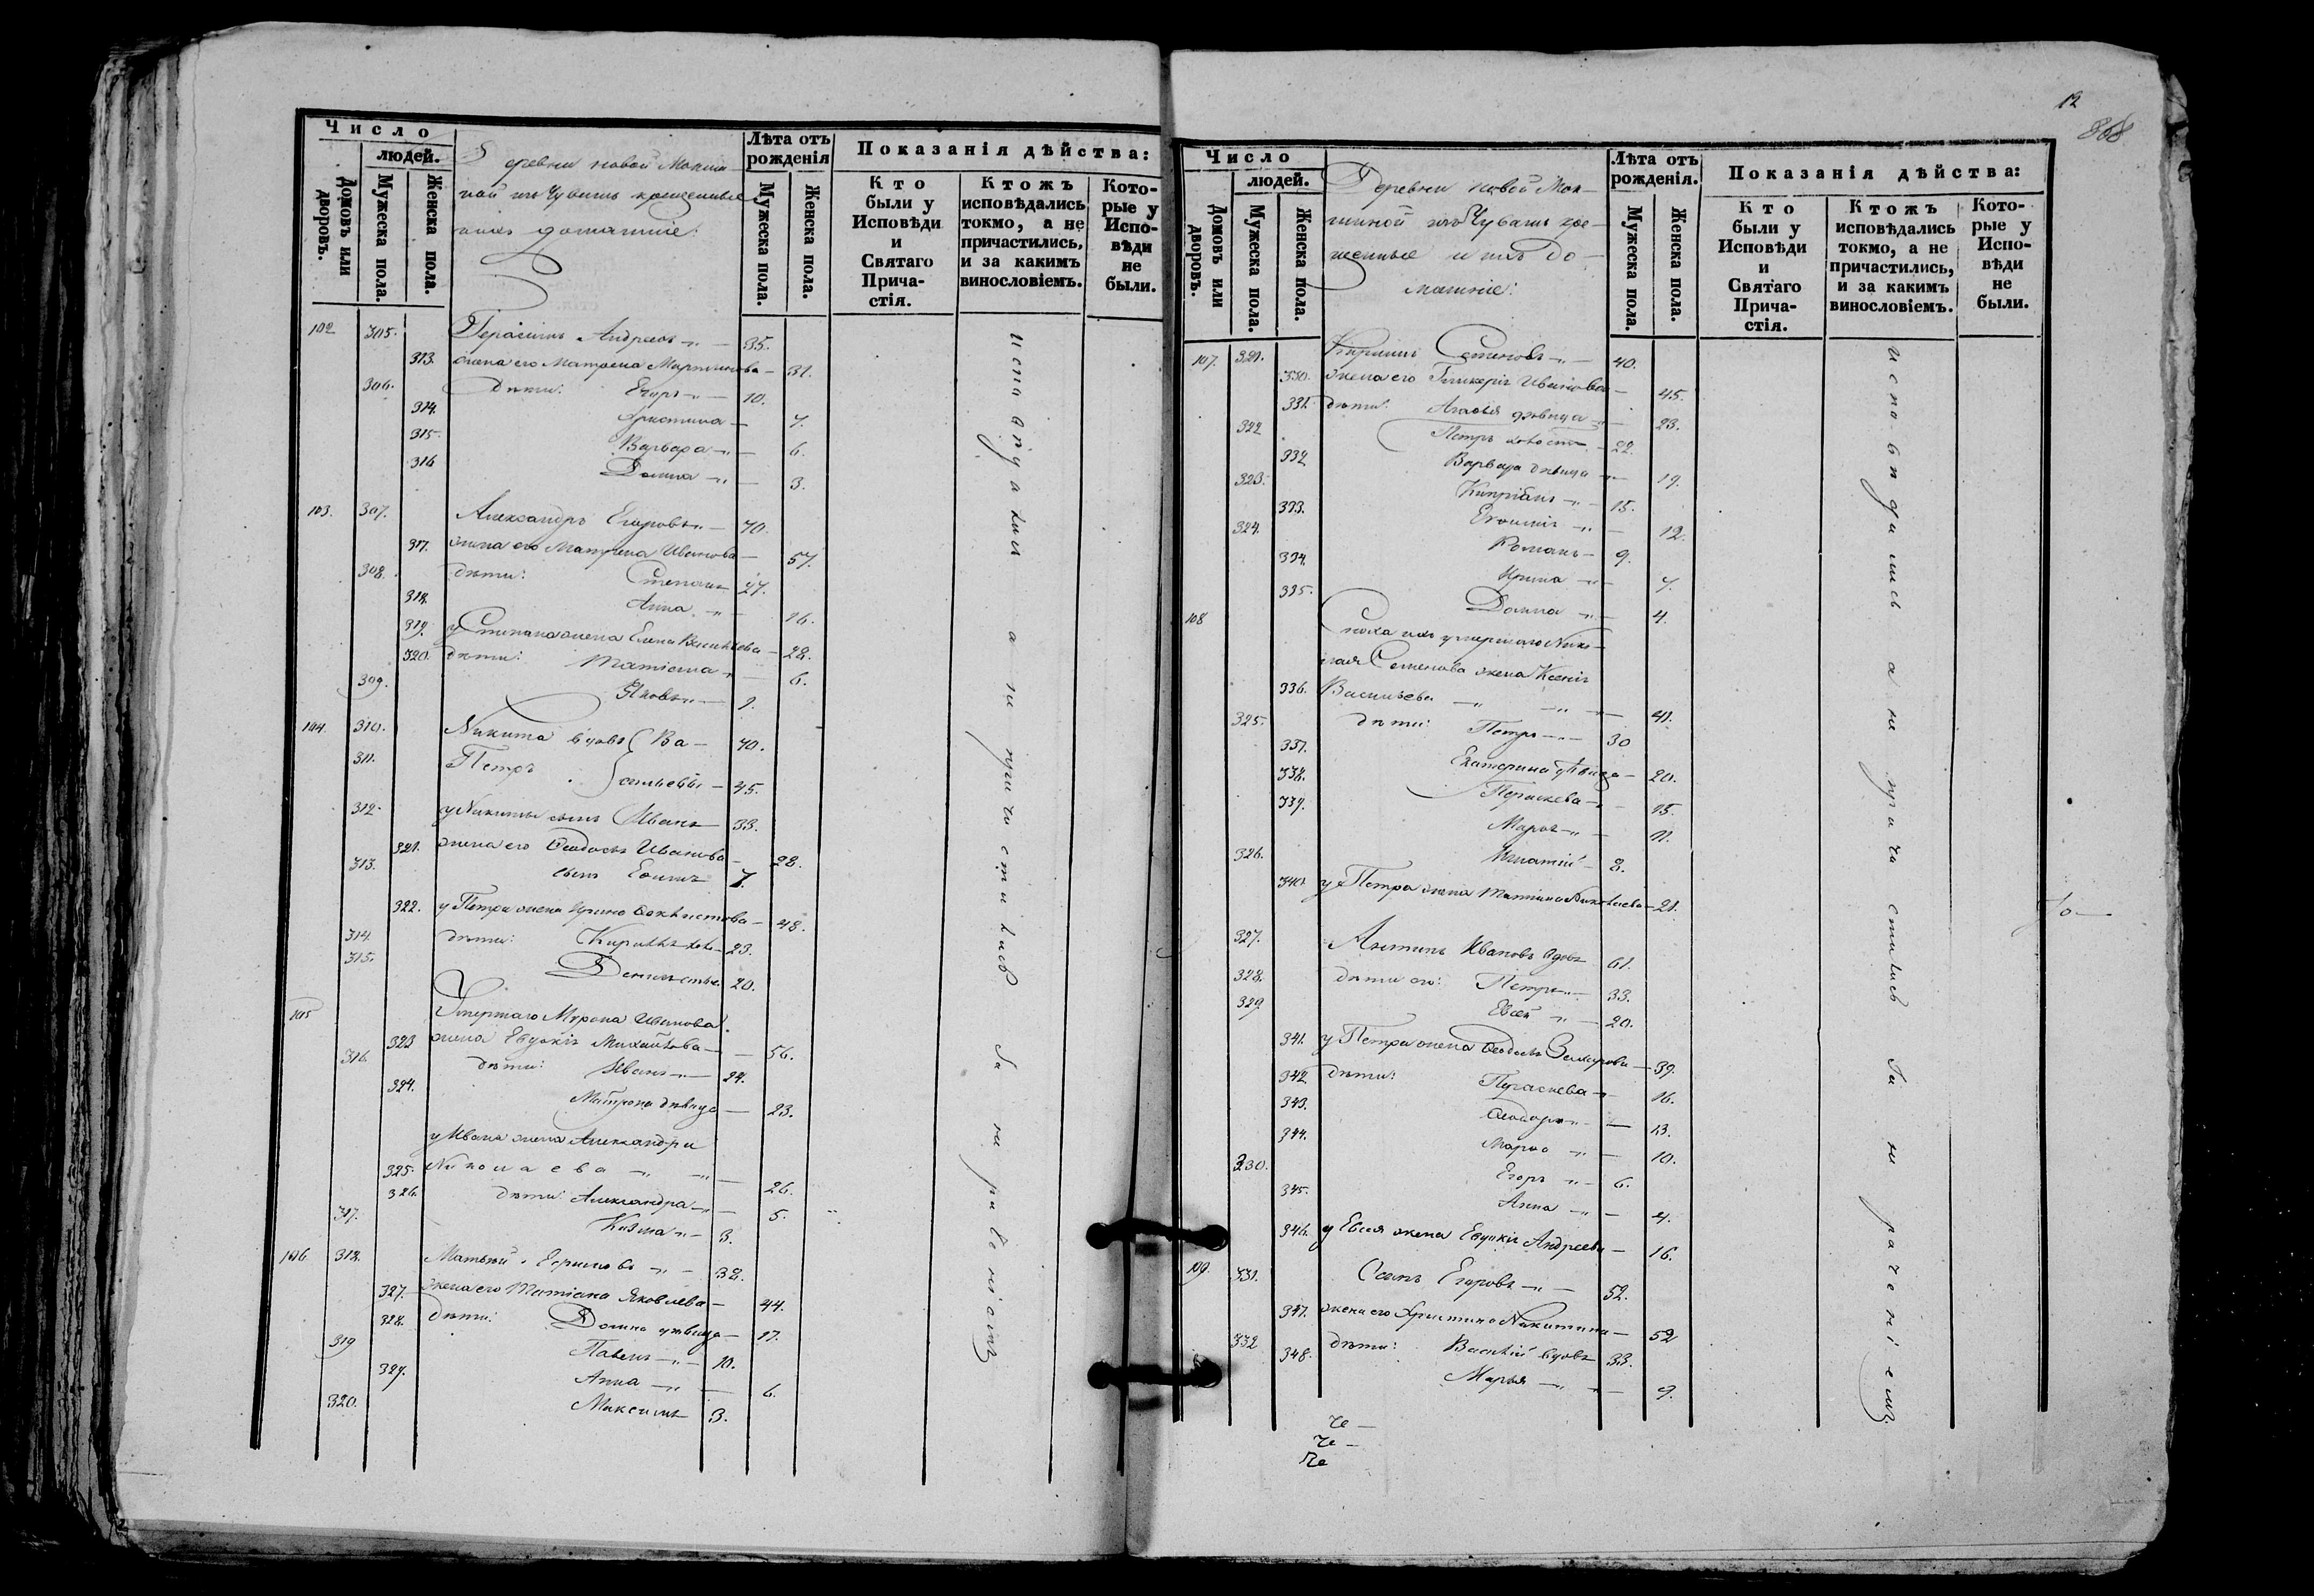 Число
людей.
Домовъ или дворовъ.
Мужеска пола.
Женска пола.
Деревни новой Мокши-
ной изъ Чувашъ крещенные
ихъ домашніе:
Лѣта отъ рожденія
Мужеска пола.
Женска пола.
Показанія дѣйства:
Кто были у Исповѣди и Святаго Прича-стія.
Ктожъ исповѣдались токмо, а не причастились, и за какимъ винословіемъ.
Кото-рые у Испо-вѣди не были.
102 305. Герасимъ Андреевъ 35.
313. жена его Матрена Мартинова 31.
306. дѣти: Егоръ 10.
314. Христина 7.
315. Варвара 6.
316 Домна 3.
103. 307. Александръ Егоровъ 70.
317. жена его Матрена Иванова 57.
308. дѣти: Степанъ 27.
318. Анна 16.
319. у Степана жена Елена Васильева 28.
320. дѣти: Татіана 6.
309. Яковъ 2.
104. 310. Никита вдовъ Ва- 70.
311. Петръ сильевы 45.
312. у Никиты сынъ Иванъ 33.
321. жена его Ѳеодосья Иванова 28.
313. сынъ Ефимъ 7.
322. у Петра жена Ирина 48.
314. дѣти: Кирилъ 23.
315. 20.
105 Умершаго Мирона Иванова
323 жена Евдокія Михайлова 56.
316. дѣти: Иванъ 24.
324. Матрона дѣвица 23.
у Ивана жена Александра
325. Николаева 26.
326. дѣти: Александра 5.
317. Козма 3.
106. 318. Матвѣй Ефимовъ 38.
327. жена его Татіана Яковлева 44.
328. дѣти: Домна дѣвица 17.
319 Павелъ 10.
329. Анна 6.
320. Максимъ 3.
исповѣдались а не причастились за нерадѣніемъ
12
868
Число
людей.
Домовъ или дворовъ.
Мужеска пола.
Женска пола.
Деревни новой Мок-
шиной изъ Чувашъ кре-
щенные и ихъ до-
машніе:
Лѣта отъ рожденія.
Мужеска пола.
Женска пола.
Показанія дѣйства:
Кто были у Исповѣди и Святаго Прича-стія.
Ктожъ исповѣдались токмо, а не причастились, и за какимъ винословіемъ.
Кото-рые у Испо-вѣди не были.
107. 321. Семеновъ 40.
330. жена его Гликерія Иванова 45.
331. дѣти: Агафья дѣвица 23.
322 Петръ холостъ 22.
332 Варвара дѣвица 19.
323. Кипріанъ 15.
333. Евфимія 12.
324. Романъ 9.
334. Ирина 7.
335. Домна 4.
108 Сноха ихъ умершаго Нико-
лая Семенова жена Ксенія
336. Васильева 41.
325. дѣти: Петръ 30
337. Екатерина дѣвица 20.
338. Параскева 15.
339. Марѳа 11.
326. Игнатій 8.
340. у Петра жена Татіана Николаева 21.
327. Ивановъ вдовъ 61.
328. дѣти его: Петръ 33.
329. Евсей 20.
341. у Петра жена Ѳеодосья 39.
342 дѣти: Параскева 16.
343. Ѳеодора 13.
344. Марья 10.
330. Егоръ 6.
345. Анна 4.
346. у Евсея жена Евдокія Андреева 16.
109. 331. Егоровъ 52.
347. жена его Христина Никитина 52
332 дѣти: Василій вдовъ 33.
348. Марья 9.
исповѣдались а не причастились за нераченіемъ.
Че
Че
Че